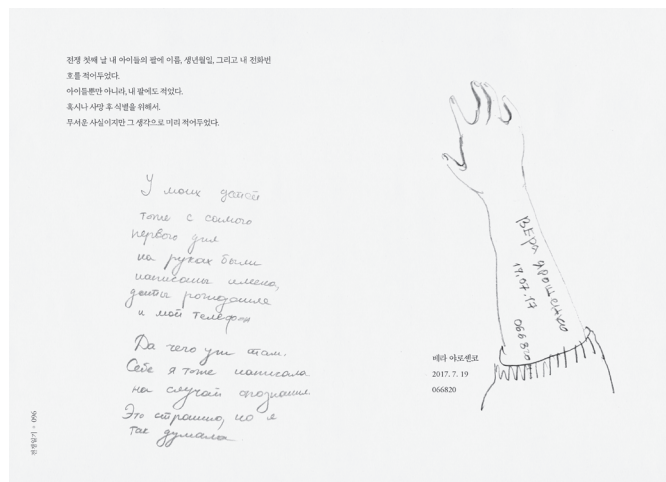 전쟁 첫째 날 내 아이들의 팔에 이름, 생년월일, 그리고 내 전화번
호를 적어두었다.
아이들뿐만 아니라, 내 팔에도 적었다.
혹시나 사망 후 식별을 위해서.
무서운 사실이지만 그 생각으로 미리 적어두었다.
У моих детей
тоже с самого
первого дня
на руках были
написаны имена,
даты рождения
и мой телефон
Да чего уж там.
Себе я тоже написала
на случай опознания.
Это страшно, но я
так думала
Вера Ярошенко
19.07.17
066820
베라 야로셴코
2017. 7. 19
066820
전쟁일기 • 096